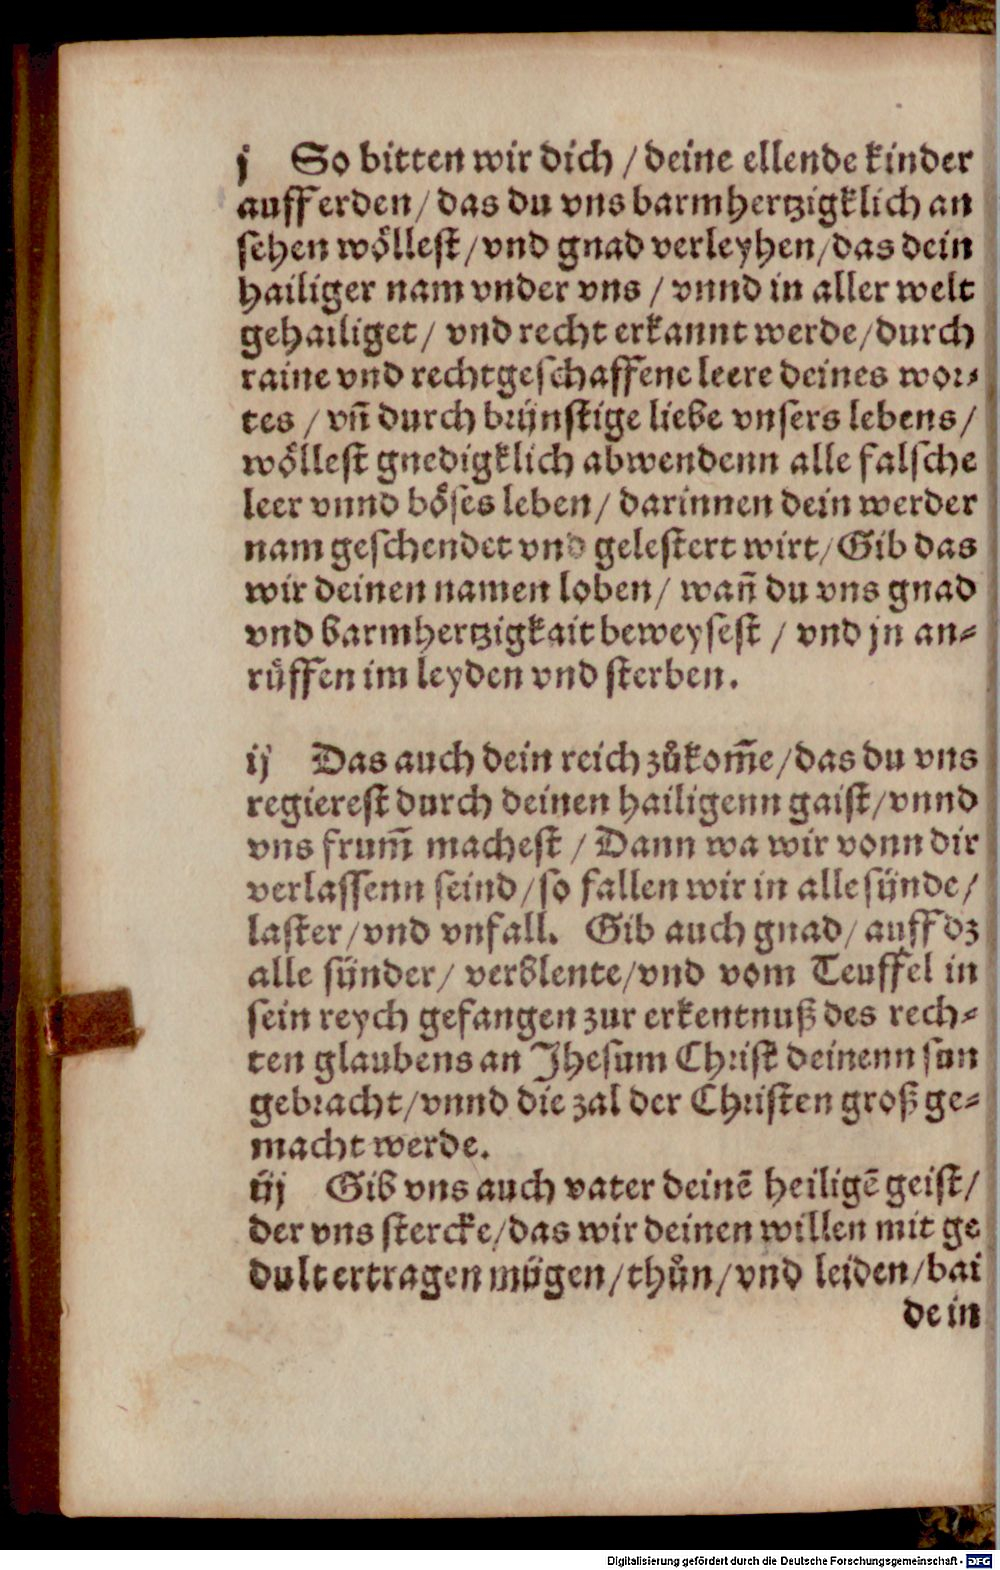 j So bitten wir dich / deine ellende kinder
auff erden / das du vns barmhertzigklich an
sehen wöllest / vnd gnad verleyhen / das dein
hailiger nam vnder vns / vnnd in aller welt
gehailiget / vnd recht erkannt werde / durch
raine vnd rechtgeschaffene leere deines wor⸗
tes / vn̄ durch brünstige liebe vnsers lebens /
wöllest gnedigklich abwendenn alle falsche
leer vnnd böses leben / darinnen dein werder
nam geschendet vnd gelestert wirt / Gib das
wir deinen namen loben / wan̄ du vns gnad
vnd barmhertzigkait beweysest / vnd jn an⸗
rüffen im leyden vnd sterben.
ij Das auch dein reich zůkom̄e / das du vns
regierest durch deinen hailigenn gaist / vnnd
vns frum̄ machest / Dann wa wir vonn dir
verlassenn seind / so fallen wir in alle sünde /
laster / vnd vnfall. Gib auch gnad / auff dz
alle sünder / verblente / vnd vom Teuffel in
sein reych gefangen zur erkentnuß des rech⸗
ten glaubens an Jhesum Christ deinenn sun
gebracht / vnnd die zal der Christen groß ge⸗
macht werde.
iij Gib vns auch vater deinē heiligē geist /
der vns stercke / das wir deinen willen mit ge
dult ertragen mügen / thůn / vnd leiden / bai
de in
Digitalisierung gefördert durch die Deutsche Forschungsgemeinschaft - DFG